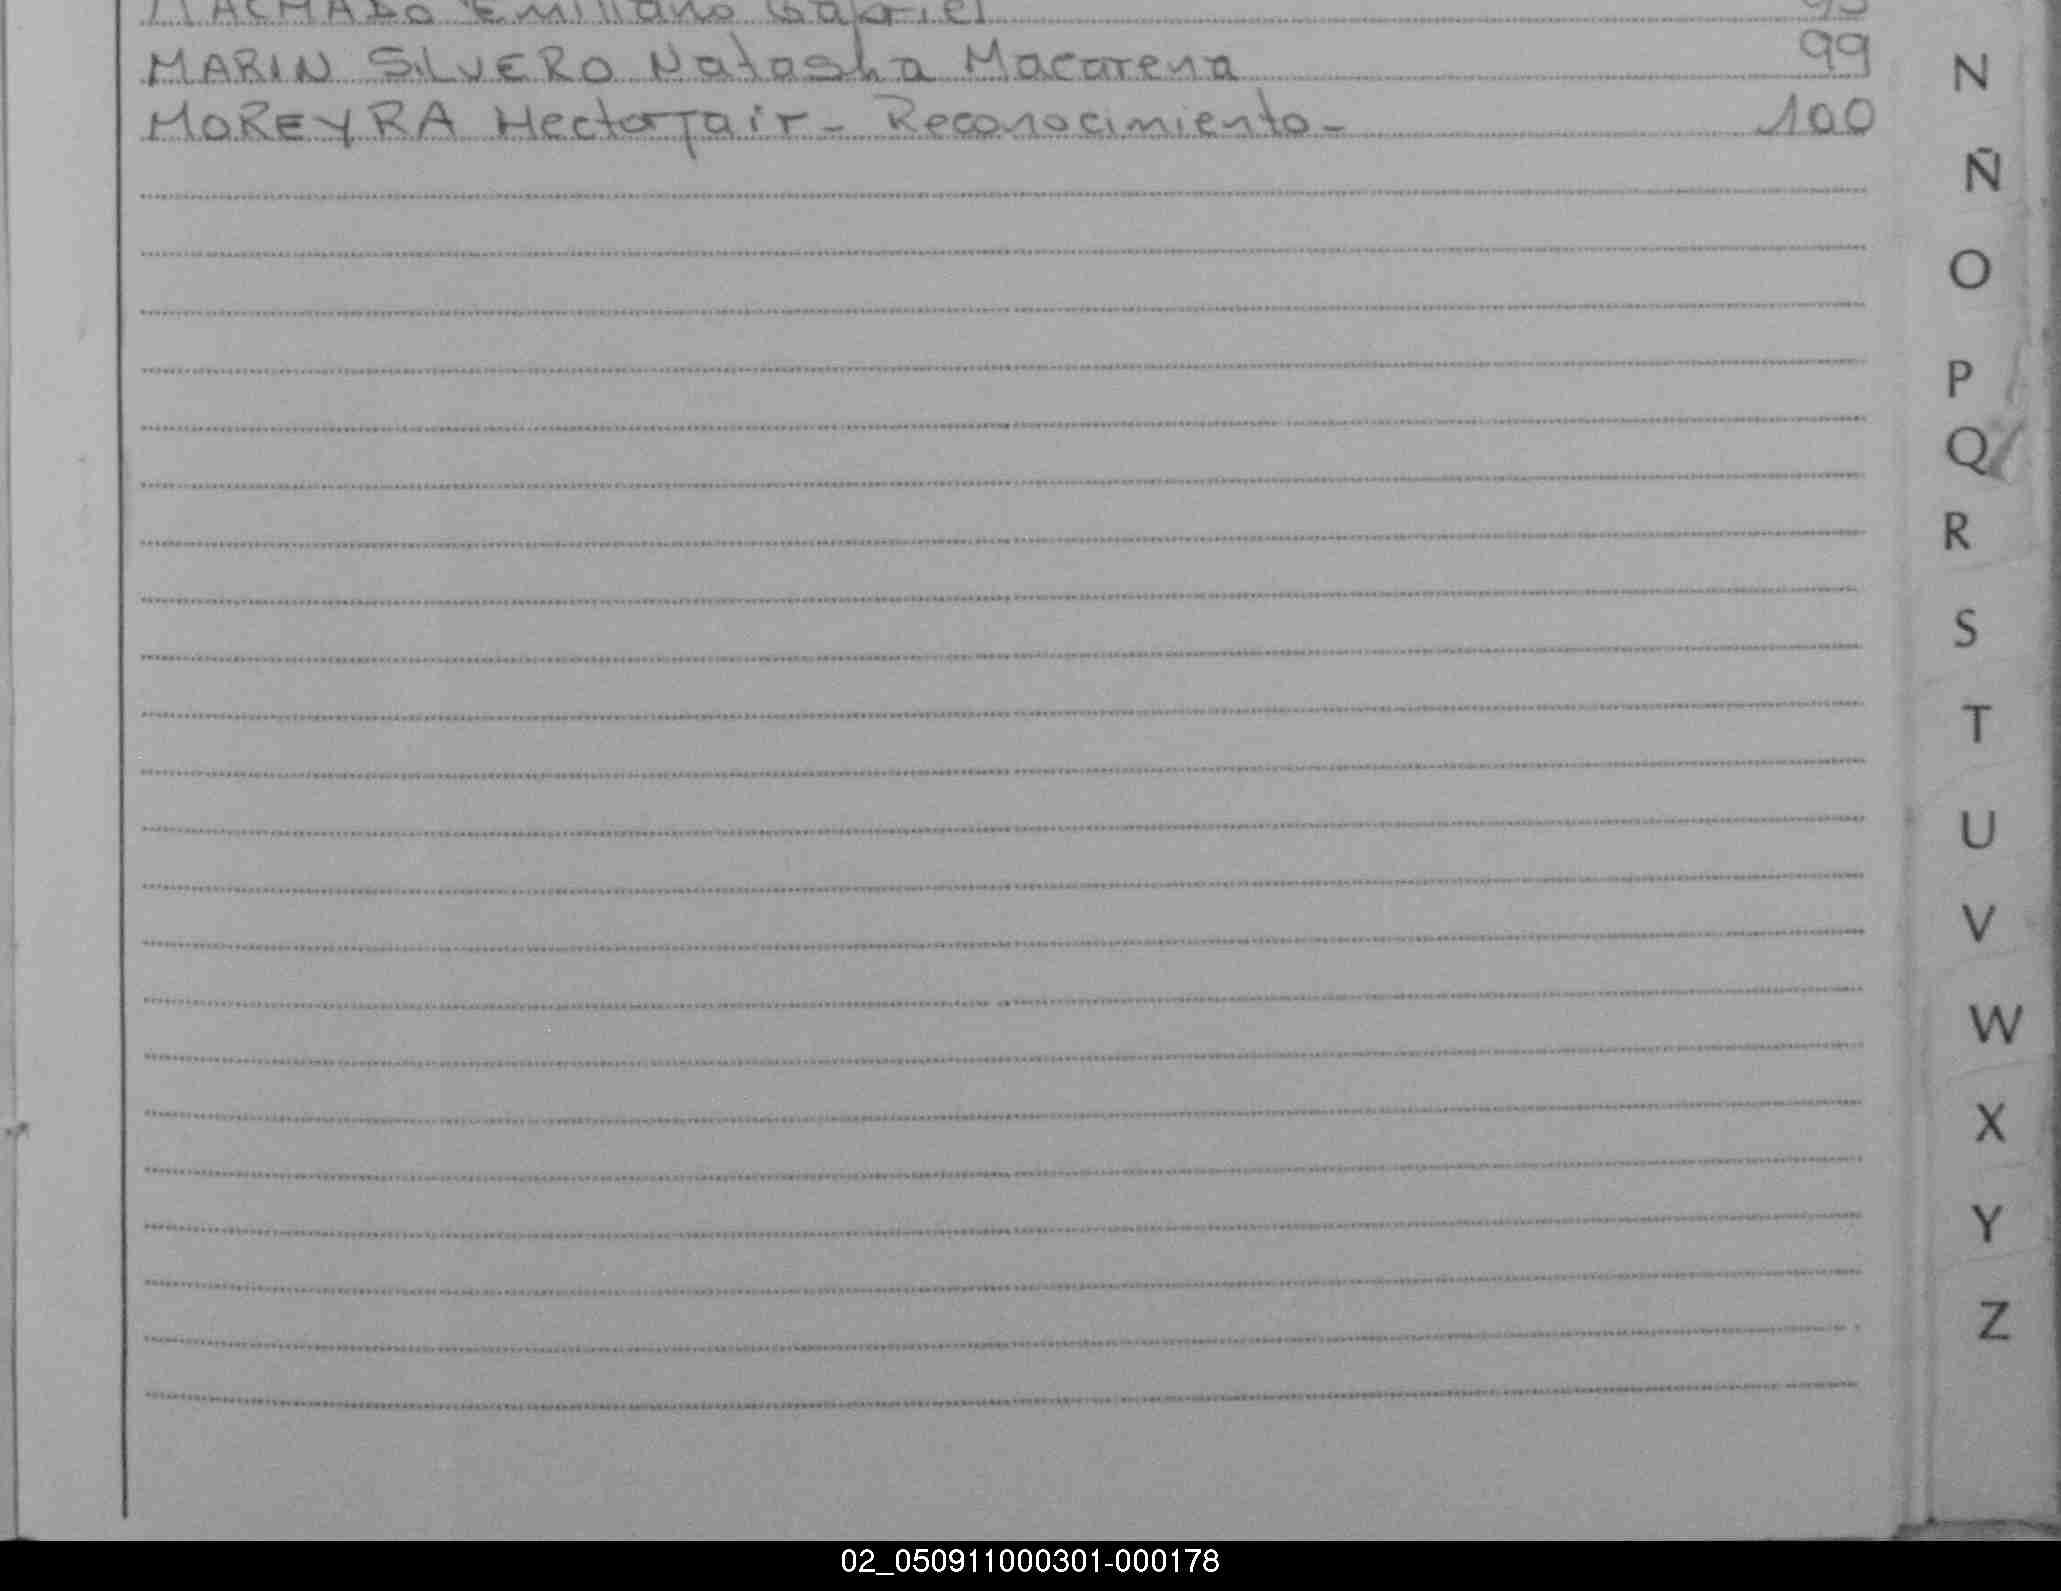 MACHADO Emiliano Gabriel 95
MARIN SILVERO Natasha Macarena 99
MOREYRA Hector Jair - Reconocimiento - 100
N
Ñ
O
P
Q
R
S
T
U
V
W
X
Y
Z
02_050911000301-000178